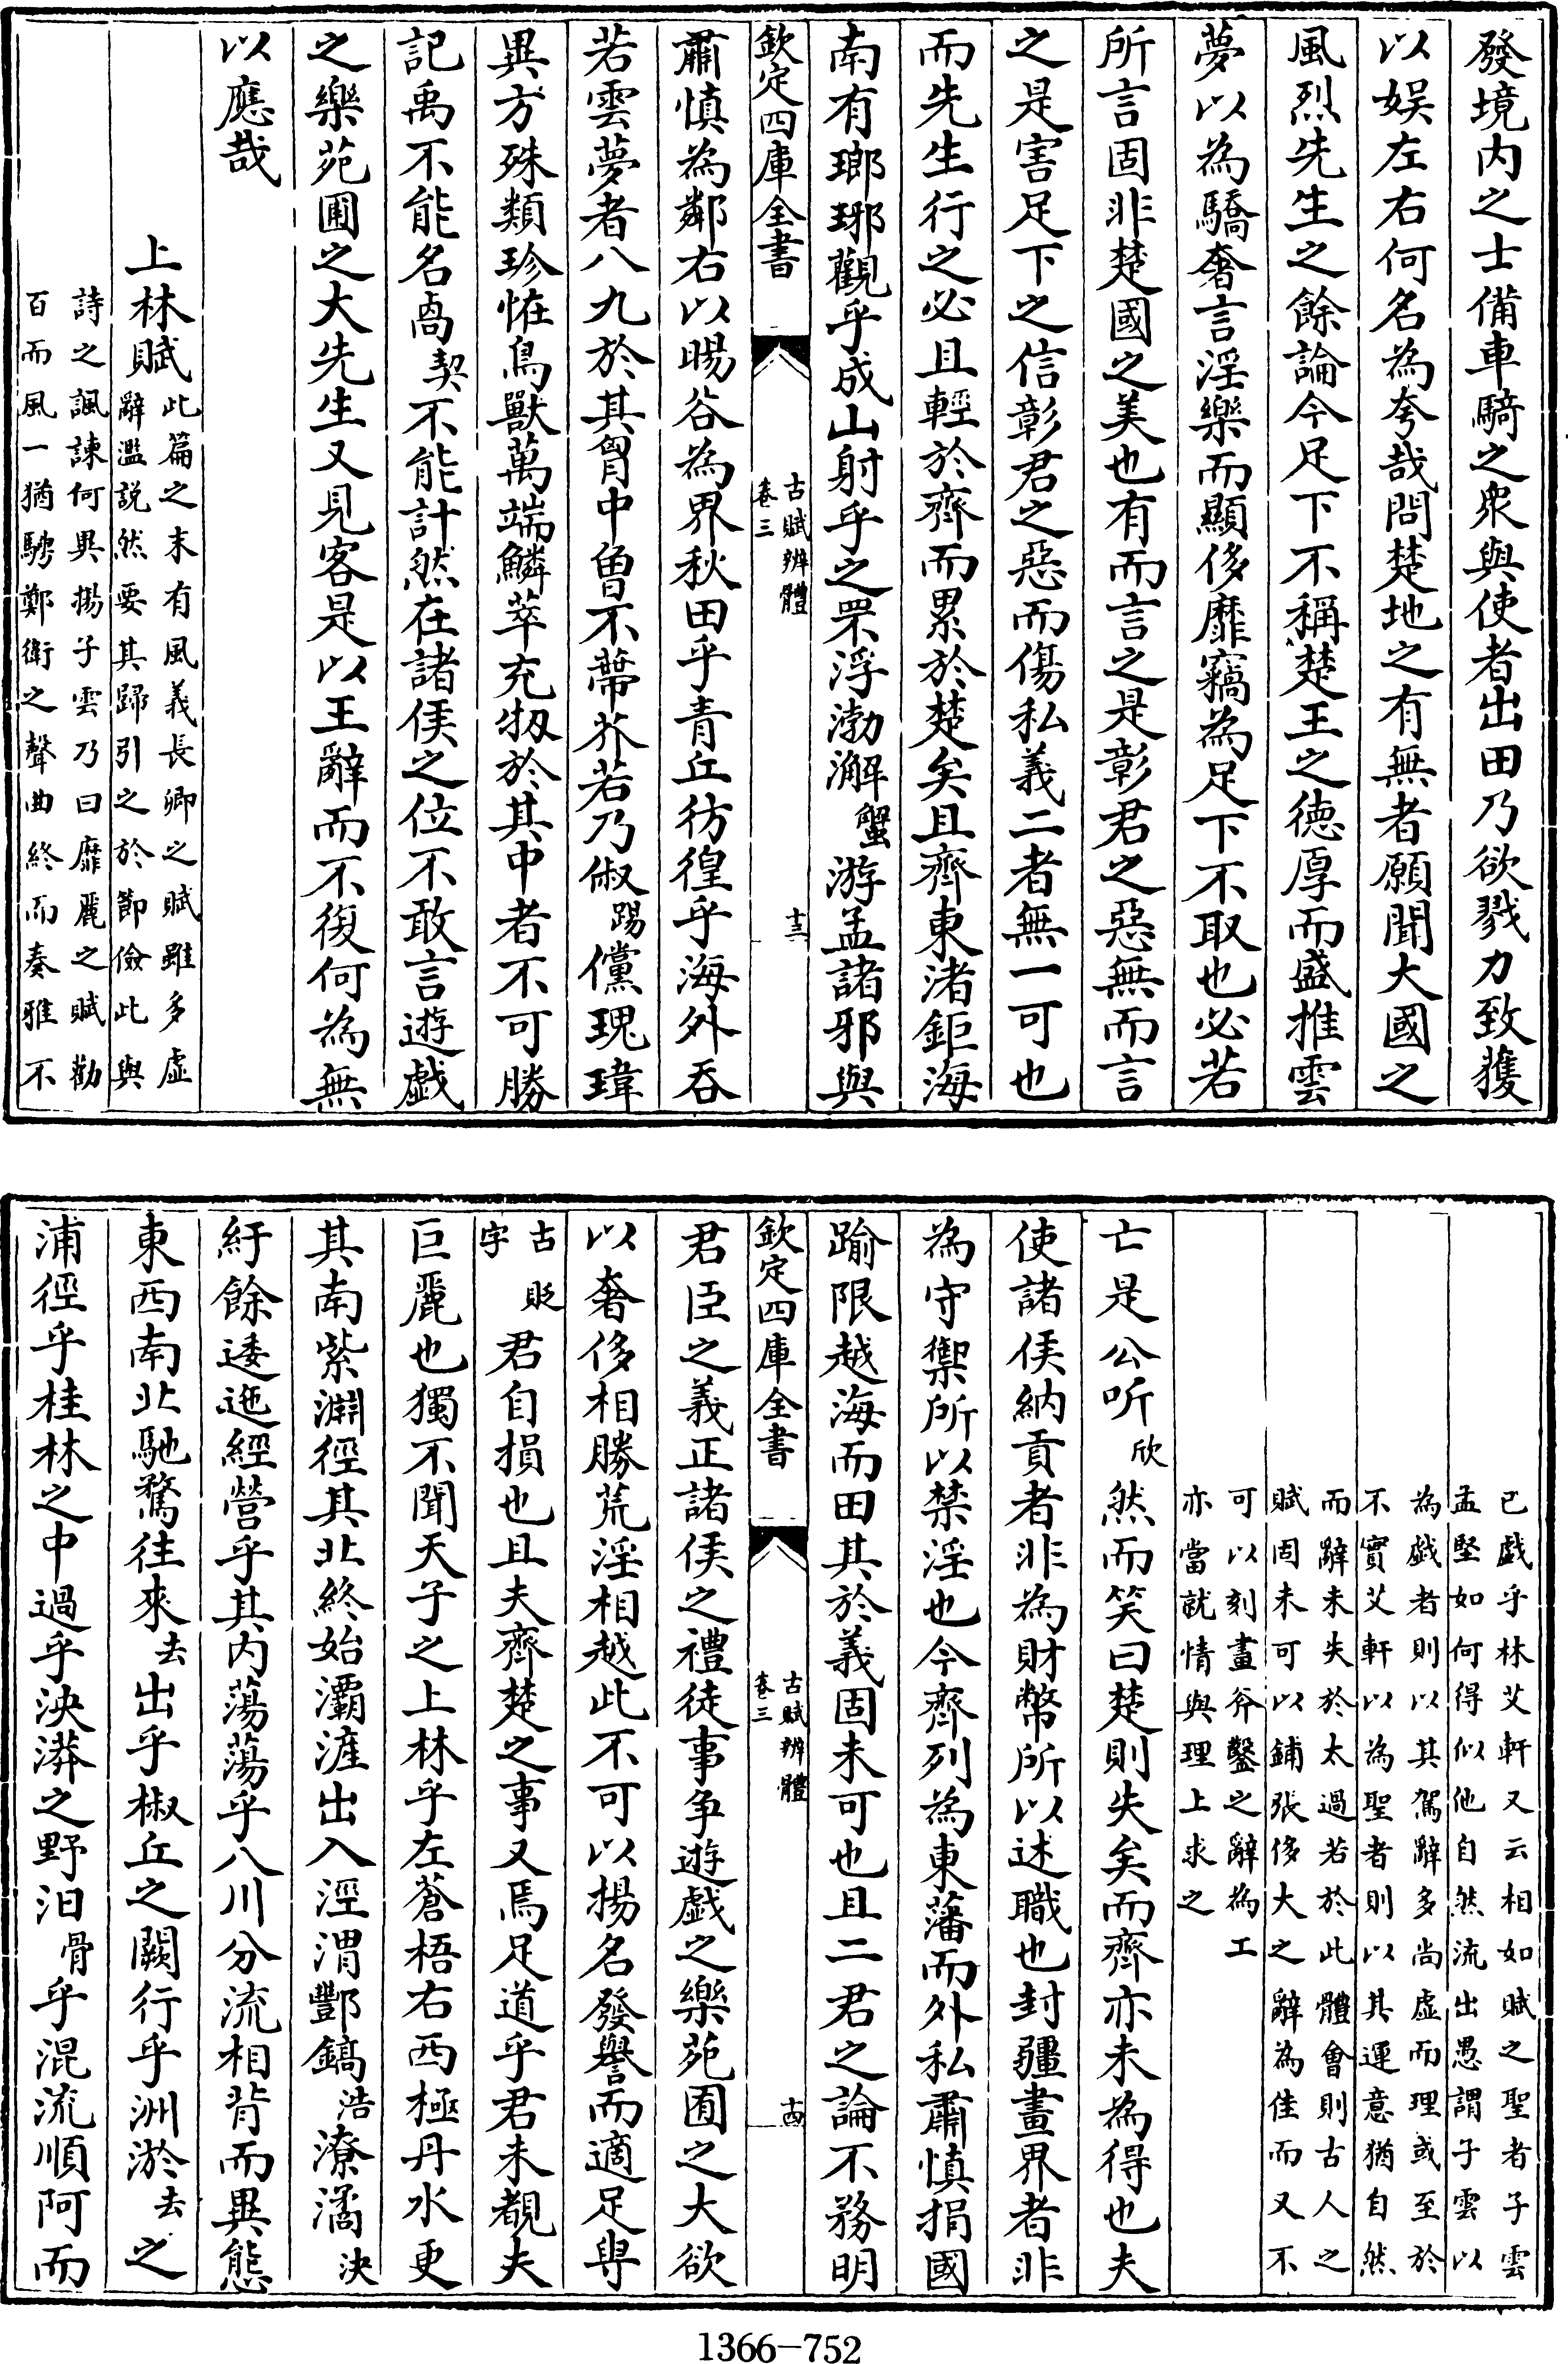 發境内之士備車騎之衆與使者出田乃欲戮力致獲
以娛左右何名為夸哉問楚地之有無者願聞大國之
風烈先生之餘論今足下不稱楚王之德厚而盛推雲
夢以為驕奢言淫樂而顯侈靡竊為足下不取也必若
所言固非楚國之美也有而言之是彰君之惡無而言
之是害足下之信彰君之惡而傷私義二者無一可也
而先生行之必且輕於齊而累於楚矣且齊東渚鉅海
南有瑯琊觀乎成山射乎之罘浮渤澥蟹游孟諸邪與
欽定四庫全書
古賦辨體
卷三
十三
肅慎為鄰右以暘谷為界秋田乎青丘彷徨乎海外吞
若雲夢者八九於其胷中曽不蔕芥若乃俶踢儻瑰瑋
異方殊類珍恠鳥獸萬端鱗萃充牣於其中者不可勝
記禹不能名卨契不能計然在諸侯之位不敢言遊戯
之樂苑圃之大先生又見客是以王辭而不復何為無
以應哉
上林賦此篇之末有風義長卿之賦雖多虚
辭濫説然要其歸引之於節儉此與
詩之諷諫何異揚子雲乃曰靡麗之賦勸
百而風一猶騁鄭衛之聲曲終而奏雅不
已戯乎林艾軒又云相如賦之聖者子雲
孟堅如何得似他自然流出愚謂子雲以
為戯者則以其駕辭多尚虚而理或至於
不實艾軒以為聖者則以其運意猶自然
而辭未失於太過若於此體會則古人之
賦固未可以鋪張侈大之辭為佳而又不
可以刻畫斧鑿之辭為工
亦當就情與理上求之
亡是公听欣然而笑曰楚則失矣而齊亦未為得也夫
使諸侯納貢者非為財幣所以述職也封疆畫界者非
為守禦所以禁淫也今齊列為東藩而外私肅慎捐國
踰限越海而田其於義固未可也且二君之論不務明
欽定四庫全書
古賦辨體
卷三
十四
君臣之義正諸侯之禮徒事争遊戯之樂苑囿之大欲
以奢侈相勝荒淫相越此不可以揚名發譽而適足㝵
古貶
字君自損也且夫齊楚之事又焉足道乎君未覩夫
巨麗也獨不聞天子之上林乎左蒼梧右西極丹水更
其南紫淵徑其北終始灞滻出入涇渭酆鎬浩潦潏決
紆餘逶迤經營乎其内蕩蕩乎八川分流相背而異態
東西南北馳騖往來去出乎椒丘之闕行乎洲淤去之
浦徑乎桂林之中過乎泱漭之野汩骨乎混流順阿而
1366-752